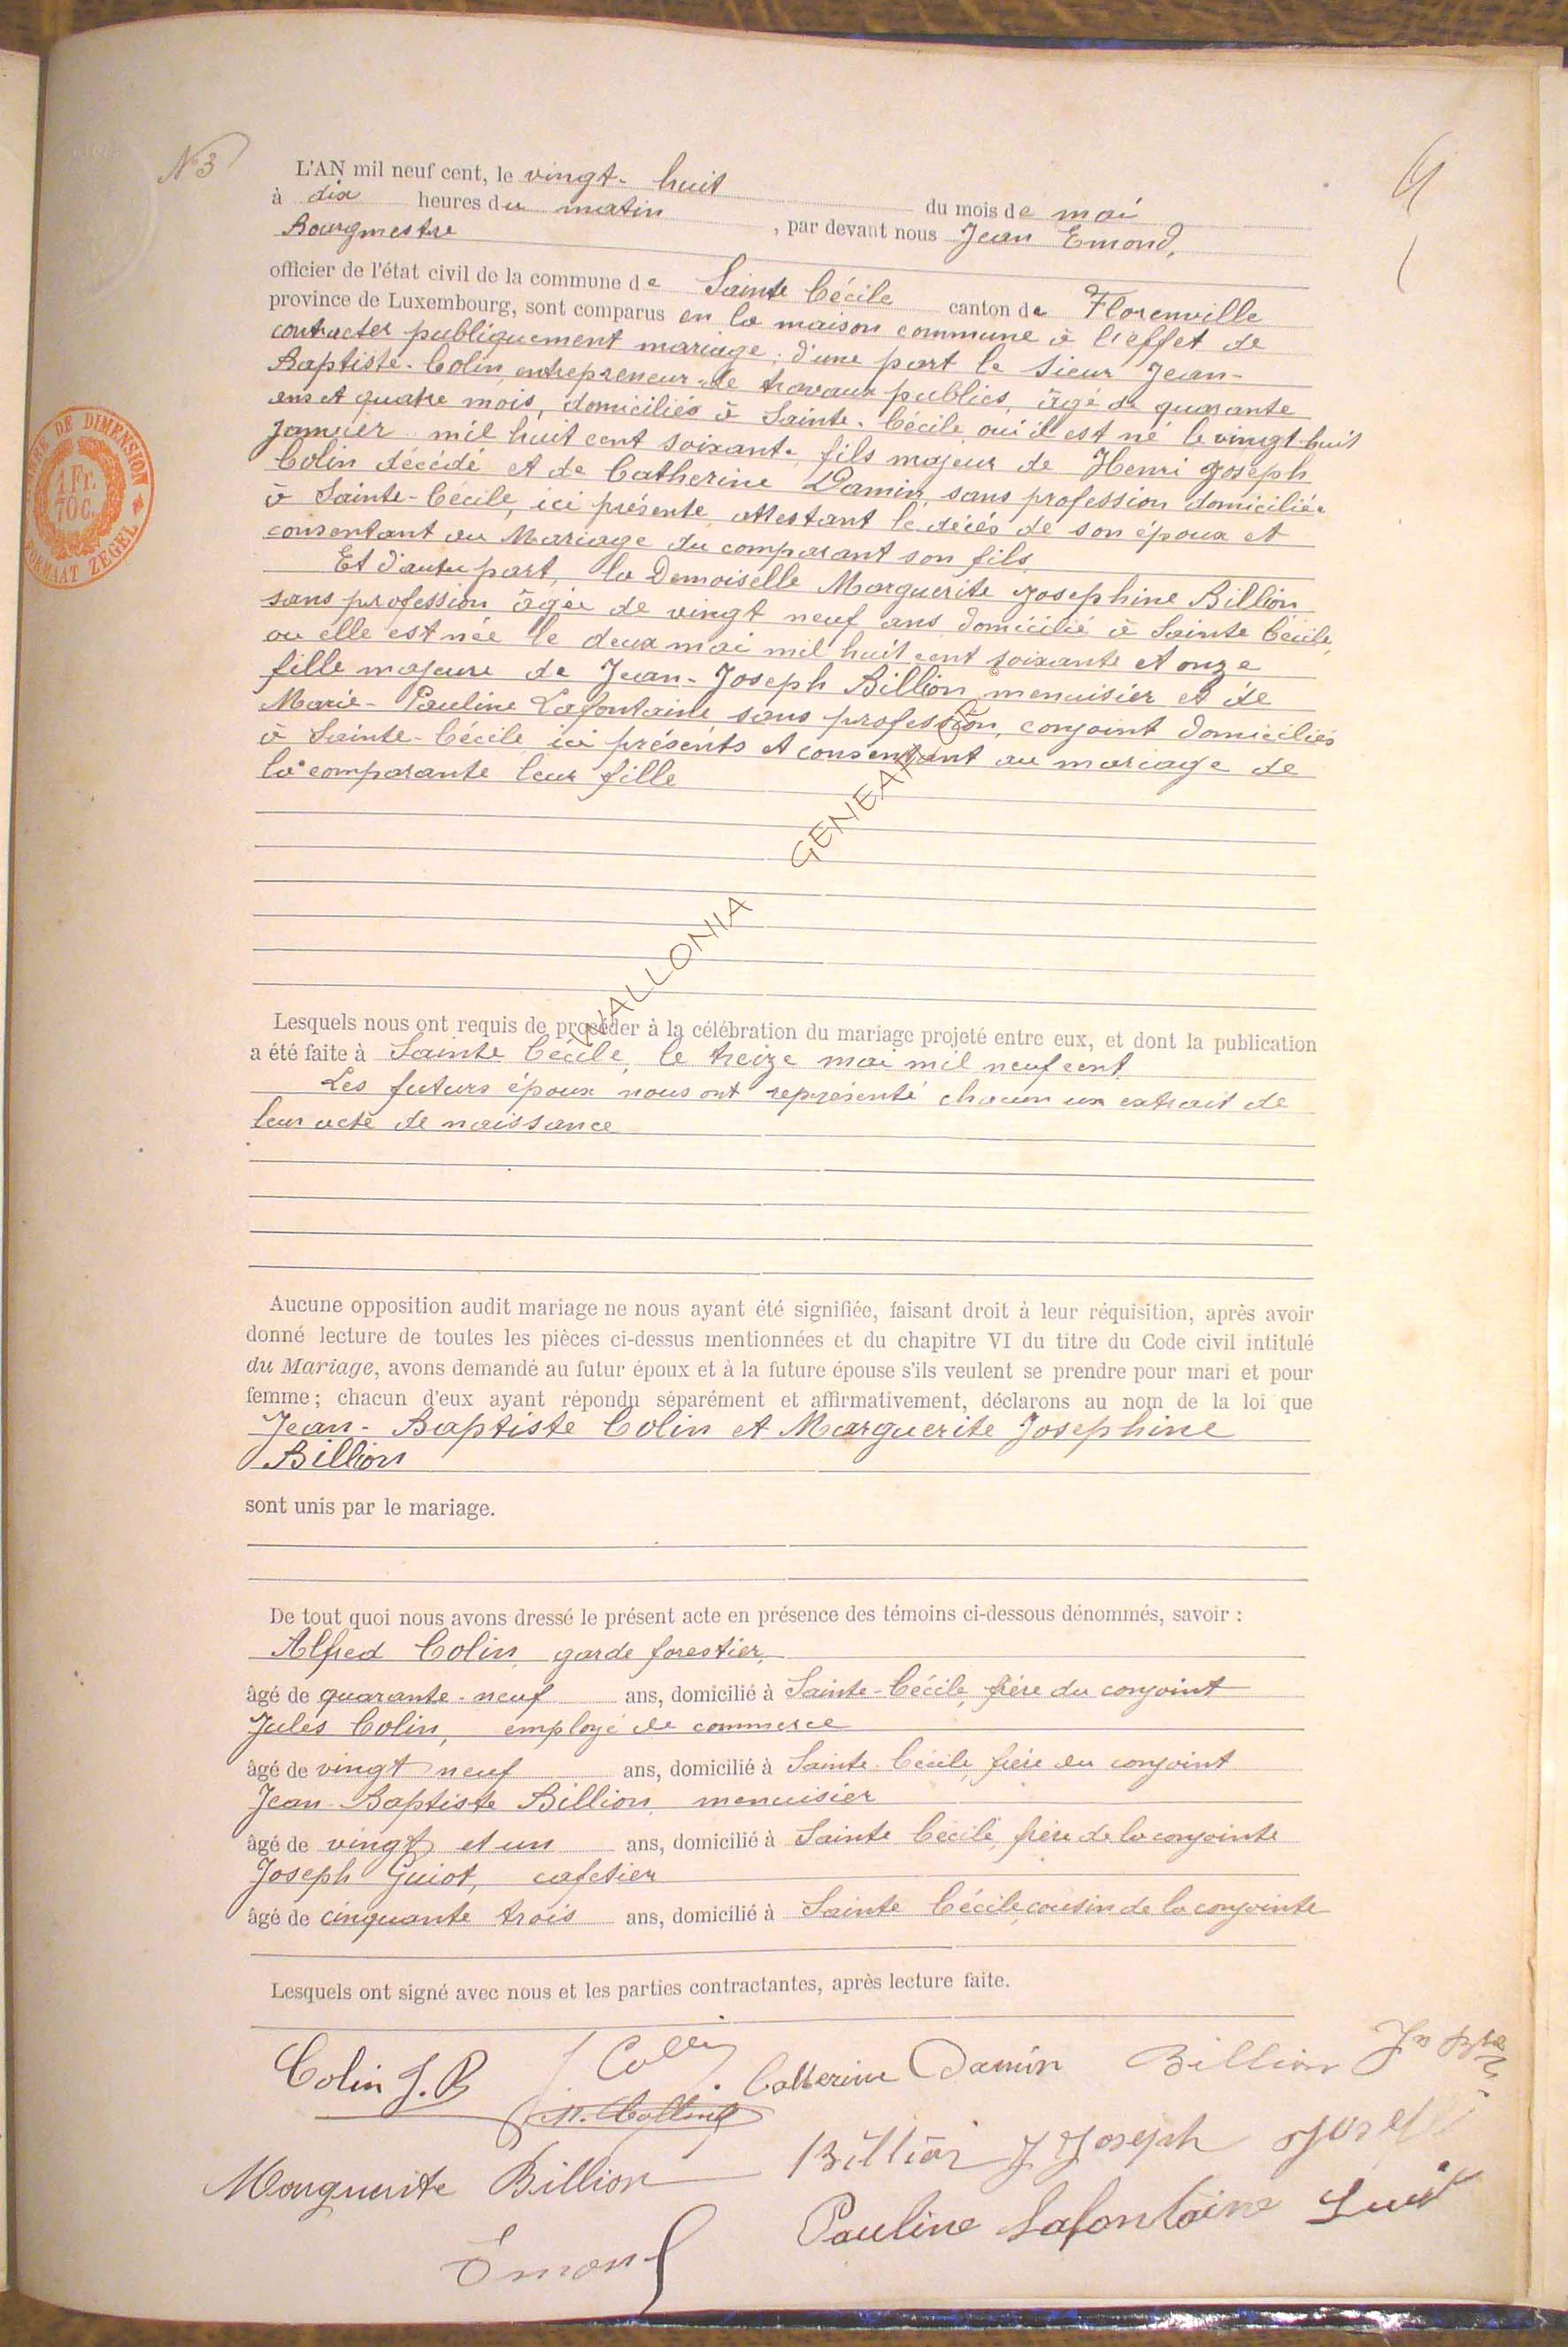 N° 3
L'AN mil neuf cent, le vingt-huit du mois de mai
à dix heures du matin, par devant nous Jean Emond,
Bourgmestre
officier de l'état civil de la commune de Sainte Cécile canton de Florenville
province de Luxembourg, sont comparus en la maison commune à l'effet de
contracter publiquement mariage; d'une part le sieur Jean-
Baptiste-Colin, entrepreneur de travaux publics, âgé de quarante
ans et quatre mois, domiciliés à Sainte-Cécile où il est né le vingt huit
Janvier mil huit cent soixante, fils majeur de Henri Joseph
Colin décédé et de Catherine Damin, sans profession domiciliée
à Sainte-Cécile, ici présente, attestant le décès de son époux et
consentant au Mariage du comparant son fils.
Et d'autre part, la Demoiselle Marguerite Josephine Billion
sans profession âgée de vingt neuf ans domicilié à Sainte Cécile,
ou elle est née le deux mai mil huit cent soixante et onze
fille majeure de Jean-Joseph Billion menuisier et de
Marie-Pauline Lafontaine sans profession, conjoint domiciliés
à Sainte-Cécile ici présents et consentant au mariage de
la comparante leur fille
WALLONIA GENEALOGIE
Lesquels nous ont requis de procéder à la célébration du mariage projeté entre eux, et dont la publication
a été faite à Sainte Cécile, le treize mai mil neuf cent
Les futurs époux nous ont représenté chacun un extrait de
leur acte de naissance
Aucune opposition audit mariage ne nous ayant été signifiée, faisant droit à leur réquisition, après avoir
donné lecture de toutes les pièces ci-dessus mentionnées et du chapitre VI du titre du Code civil intitulé
du Mariage, avons demandé au futur époux et à la future épouse s'ils veulent se prendre pour mari et pour
femme; chacun d'eux ayant répondu séparément et affirmativement, déclarons au nom de la loi que
Jean-Baptiste Colin et Marguerite Josephine
Billion
sont unis par le mariage.
De tout quoi nous avons dressé le présent acte en présence des témoins ci-dessous dénommés, savoir :
Alfred Colin, garde forestier,
âgé de quarante-neuf ans, domicilié à Sainte-Cécile, frère du conjoint
Jules Colin, employé de commerce
âgé de vingt neuf ans, domicilié à Sainte-Cécile, frère du conjoint
Jean-Baptiste Billion, menuisier
âgé de vingt et un ans, domicilié à Sainte Cécile, frère de la conjointe
Joseph Guiot, cafetier
âgé de cinquante trois ans, domicilié à Sainte Cécile, cousin de la conjointe
Lesquels ont signé avec nous et les parties contractantes, après lecture faite.
Colin J. B J. Colin Catherine Damin Billion Jn Bte
Marguerite Billion Billion J Joseph
Emond Pauline Lafontaine
TIMBRE DE DIMENSION
1 Fr.
70 c.
FORMAAT ZEGEL